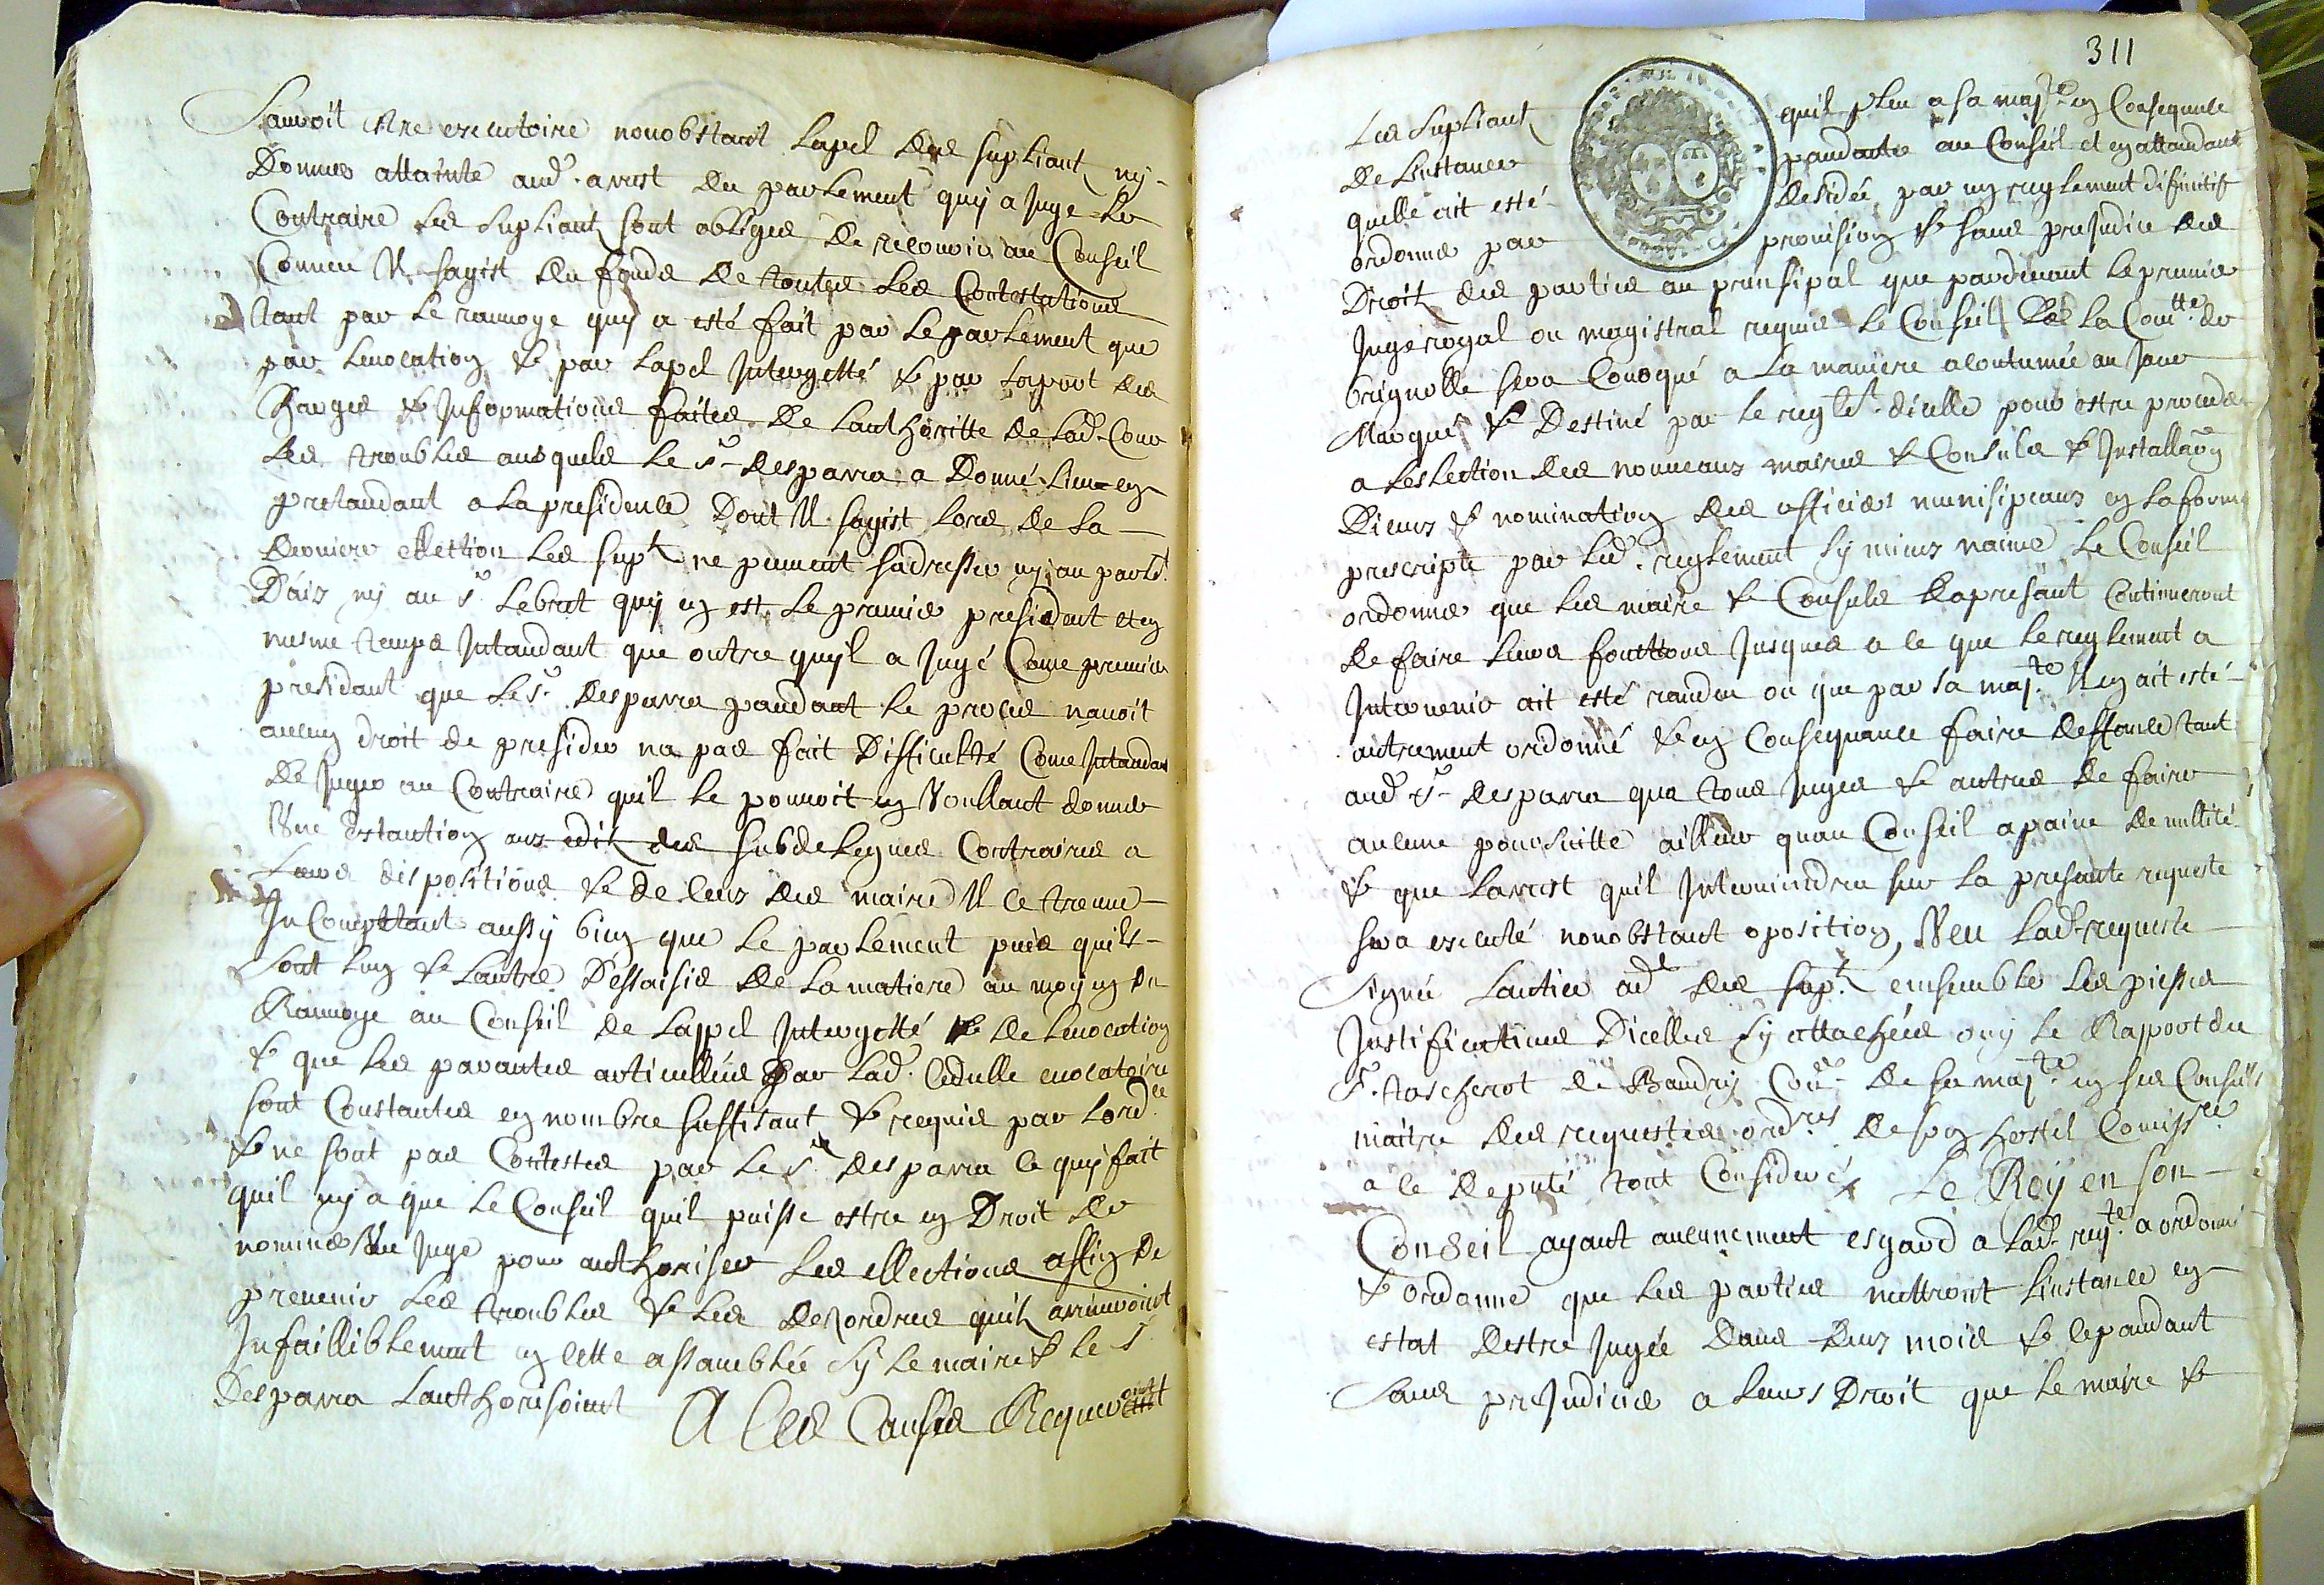 Sauroit estre executoire nonobstant lapel des supliants ny
Donner attainte aud. arrest du parlement quy a Juge le
Contraire les supliants sont obliges de recourir au Conseil
Comme Il sagist du fonds de toutes les Contestations
tant par le ranvoye quy a esté fait par le parlement que
par levocation & par lapel Interjetté & par laport des
Charges & Informations faites de lauthoritte de lad. Cour
des troubles ausquels le sr desparra a Donné lieu en
pretandant a la presidence Dont Il sagist lors de la
derniere ellection les supts ne peuvent sadresser ny au parlt
Daix ny au sr. lebret quy en est le premier president et en
mesme temps Intandant que outre quyl a Jugé Come premier
presidant que le sr. desparra pandant le proces navoit
aucun droit de presider na pas fait Difficultté Come Intandant
de Juger au Contraire quil le pouvoit en Voullant donner
Une Extantion aux edits des subdelegues Contraires a
leurs dispositions & de leux des maires Il ce treuve
In Compettant aussy bien que le parlement puis quils
sont lun & lautre Dessaisis de la matiere au moyen du
Ranvoye au Conseil de lappel Interjetté & de levocation
& que les parantes articullées par lad. Cedulle evocatoire
sont Constantes en nombre suffisant & requis par lordce
& ne sont pas Contestes par le sr desparra ce quy fait
quil ny a que le Conseil quil puisse estre en Droit de
nommer Un Juge pour authoriser les ellections affin de
prevenir les troubles & les desordres quils arriveroint
Infailliblement en cette assamblée sy le maire & le sr
Desparra lauthorisoint A Ces Causes Requeroint
311
Les supliants quil pleu a sa majte en Consequance
de linstance pandante au Conseil et en attandant
quelle ait esté desidée par un reglement difinitif
ordonner par provision & sans prejudice des
Droits des parties au prinsipal que pardevant le premier
Juge royal ou magistrat requis le Conseil de la Comtte de
brignolle sera Convoqué a la maniere acoutumée au Jour
Marqué & Destiné par le reglet. dicelle pour estre procedé
a leslection des nouveaux maires & Consuls & Installaon
Diceux & nomination des officiers munisipeaux en la forme
prescripte par led. reglement sy mieux naime le Conseil
ordonner que les maire & Consuls dapresant Continueront
de faire leurs fonttons Jusques a ce que le reglement a
Intervenir ait esté randeu ou que par sa majte. Il en ait esté
autrement ordonné & en Consequance faire deffances tant
aud sr desparra que tous Juges & autres de faire
aucune poursuitte ailleur quau Conseil apaine de nullité
& que larrest quil Interviendra sur la presante requeste
sera executé nonobstant oposition, Veu lad. requeste
Signée Lautier adt des supts. ensemble les piesses
Justificatives Dicelles sy attachées ouy le Rapport du
sr. tascherot de Baudry Conr de sa majte. en ses Conseils
maitre des requestes ordres de son hostel Comissre
a ce deputé tout Consideré Le Roy en son
Conseil ayant aucunement esgard a lad. reqte. a ordonné
& ordonne que les parties mettront linstance en
estat destre Jugée dans deux mois & cepandant
sans prejudicier a leurs Droit que le maire &